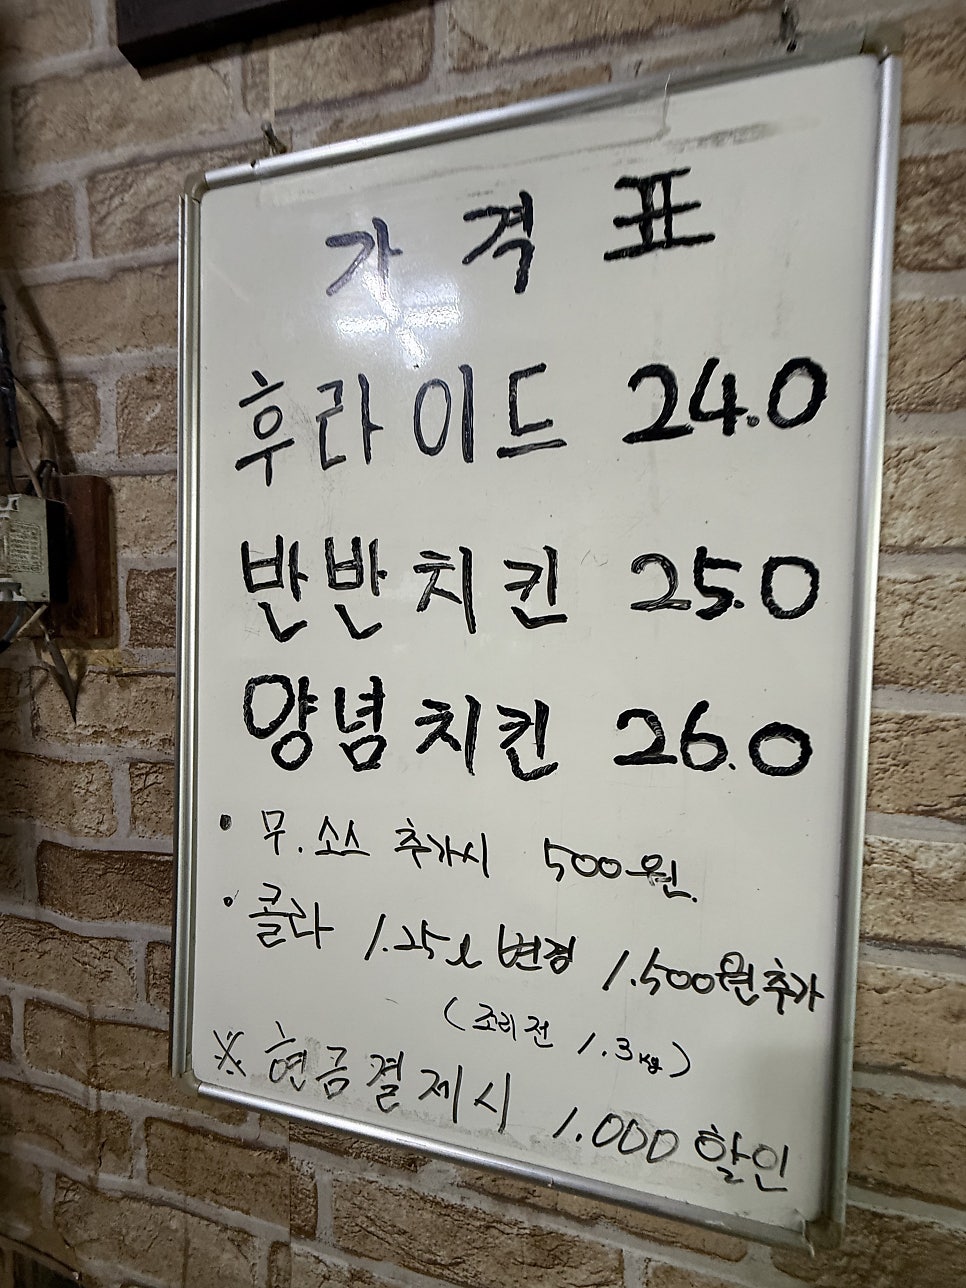 가격표
후라이드 24.0
반반치킨 25.0
양념치킨 26.0
• 무.소스 추가시 500원.
• 콜라 1.25ℓ 변경 1.500원추가
(조리전 1.3kg)
※ 현금결제시 1.000할인